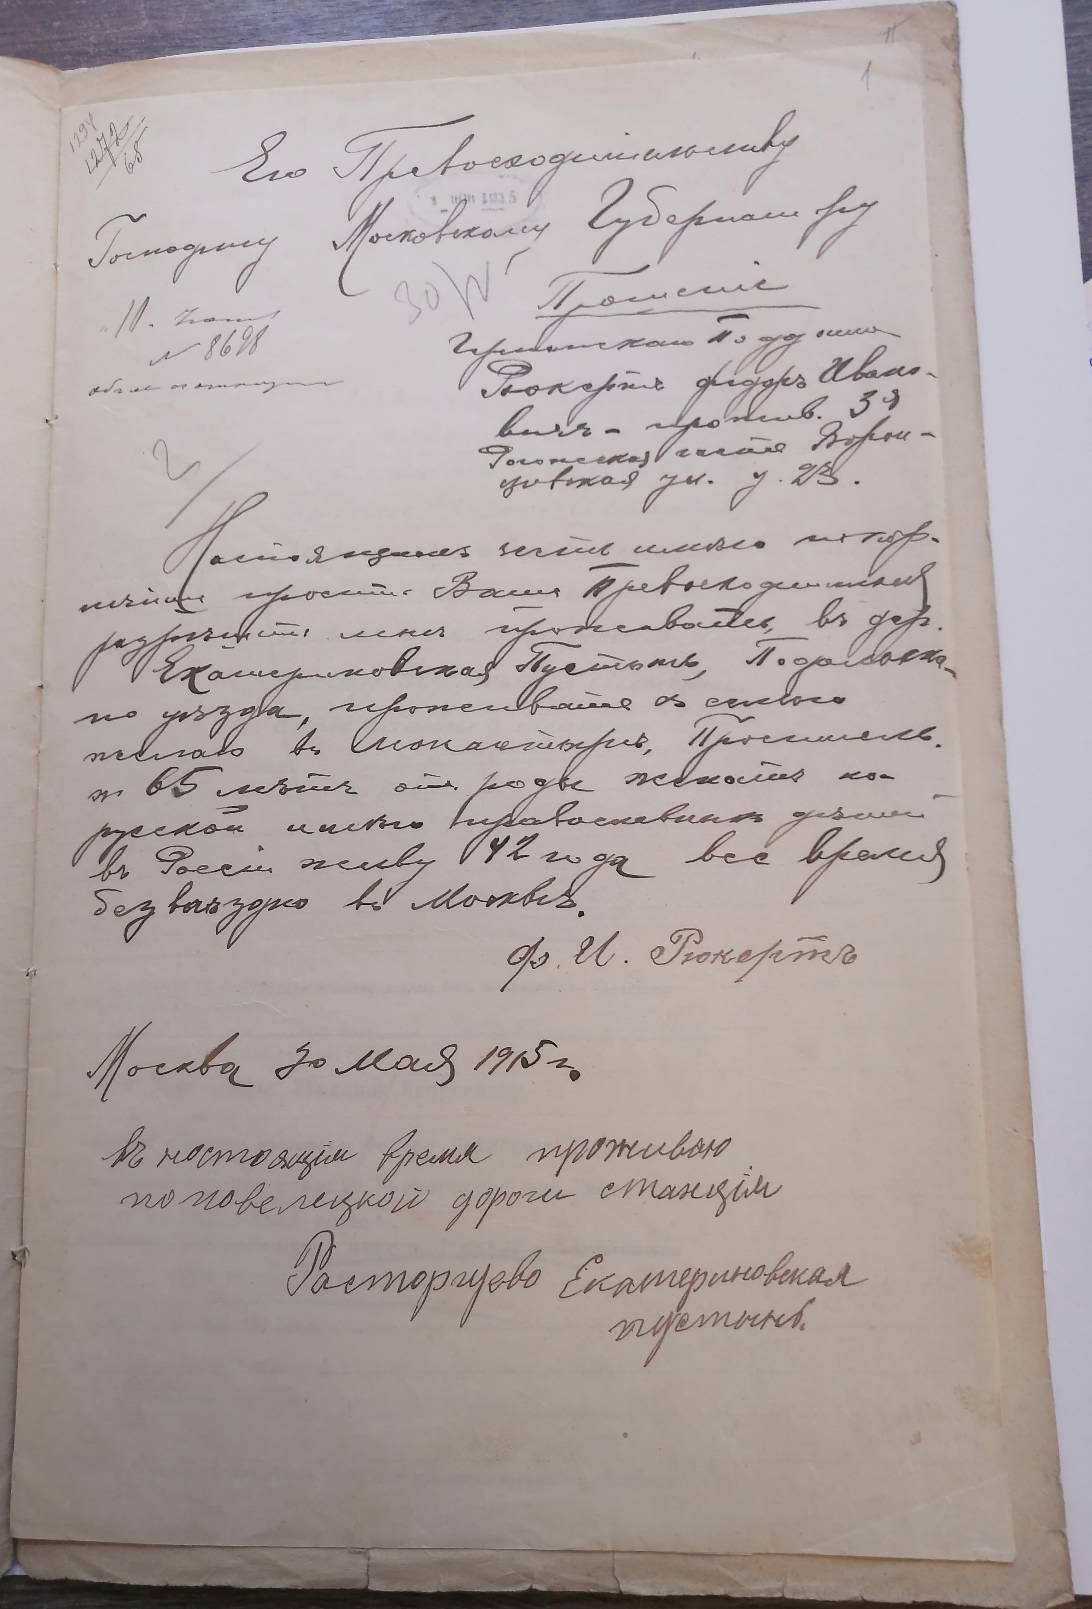 1
1272
68
Его Превосходительству
Господину Московскому Губернатору
30/VI
Прошеніе
10.
N 8698
Германскаго Поддана
Рюкертъ Фидоръ Ивано-
вичъ - прожив. 3й
Рогожская части Ворон-
цовская ул. д. 23.
Настоящимъ честь имею покор-
нѣйше просить Ваше Превосходительство
разрѣшить мне проживать въ дер.
Екатериновская Пустынь, Подольска-
го уѣзда, проживать съ семьею
желаю въ монастырѣ, Проситель.
65 лѣтъ отъ роды женатъ на
русской имею православныхъ дѣтей
въ Росеіи живу 42 года все время
безвыѣздно въ Москвѣ.
Ф. И. Рюкертъ
Москва 30 Мая 1915 г.
въностоящім время проживаю
по повелецкой дороги станціи
Расторгуево Екатериновская
пустынь.